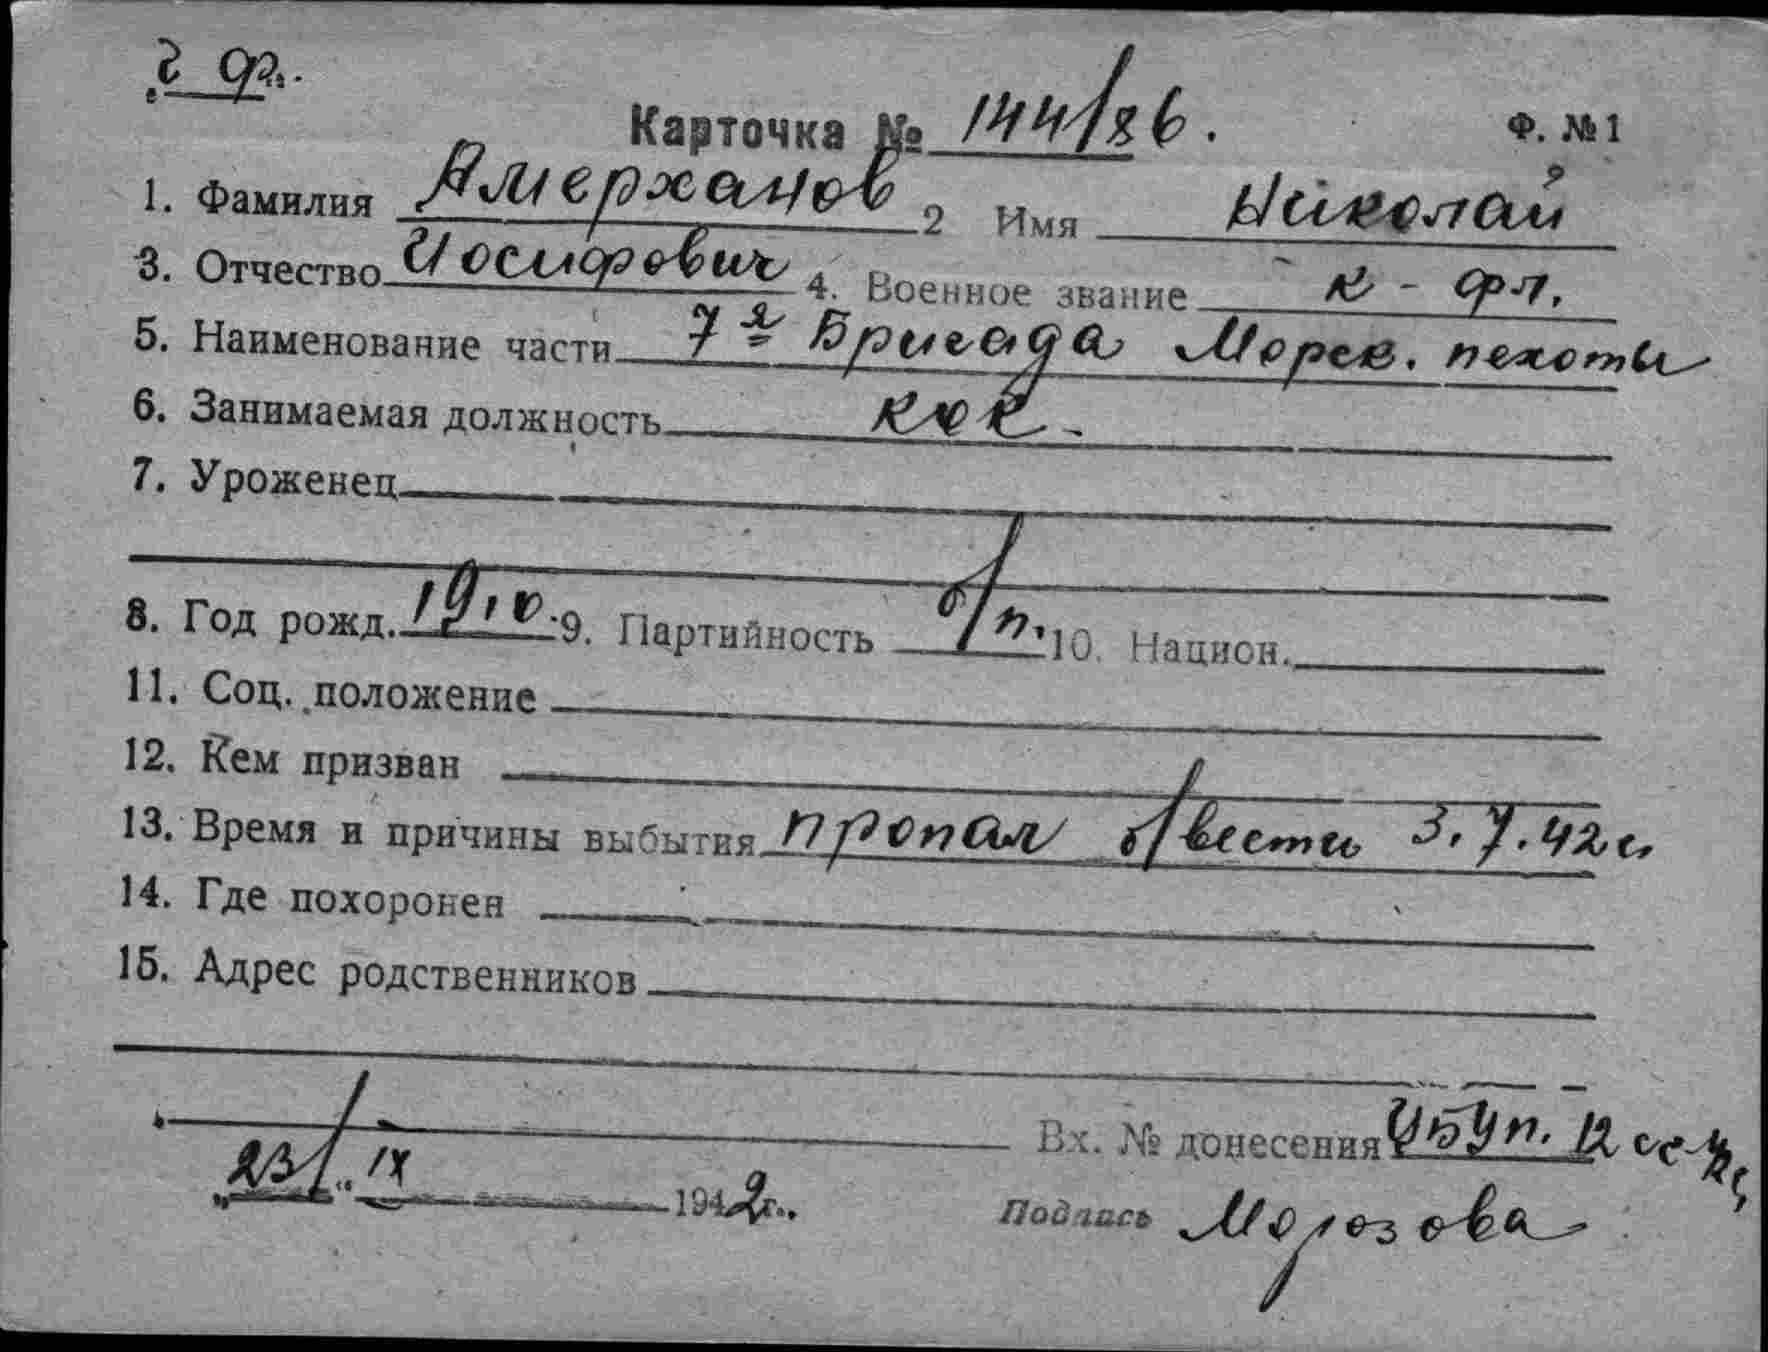 г ф.
Карточка № 144/86. Ф. №1
1. Фамилия Амерханов 2 Имя Николай
3. Отчество Иосифович 4. Военное звание к-фл.
5. Наименование части 7я Бригада Морск. пехоты
6. Занимаемая должность кок.
7. Уроженец
8. Год рожд. 1910. 9. Партийность б/п. 10. Национ.
11. Соц. положение
12. Кем призван
13. Время и причины выбытия пропал б/вести 3.7.42г.
14. Где похоронен
15. Адрес родственников
Вх. № донесения УБУп. 12
„23/" IX 1942г.. Подпись Морозова